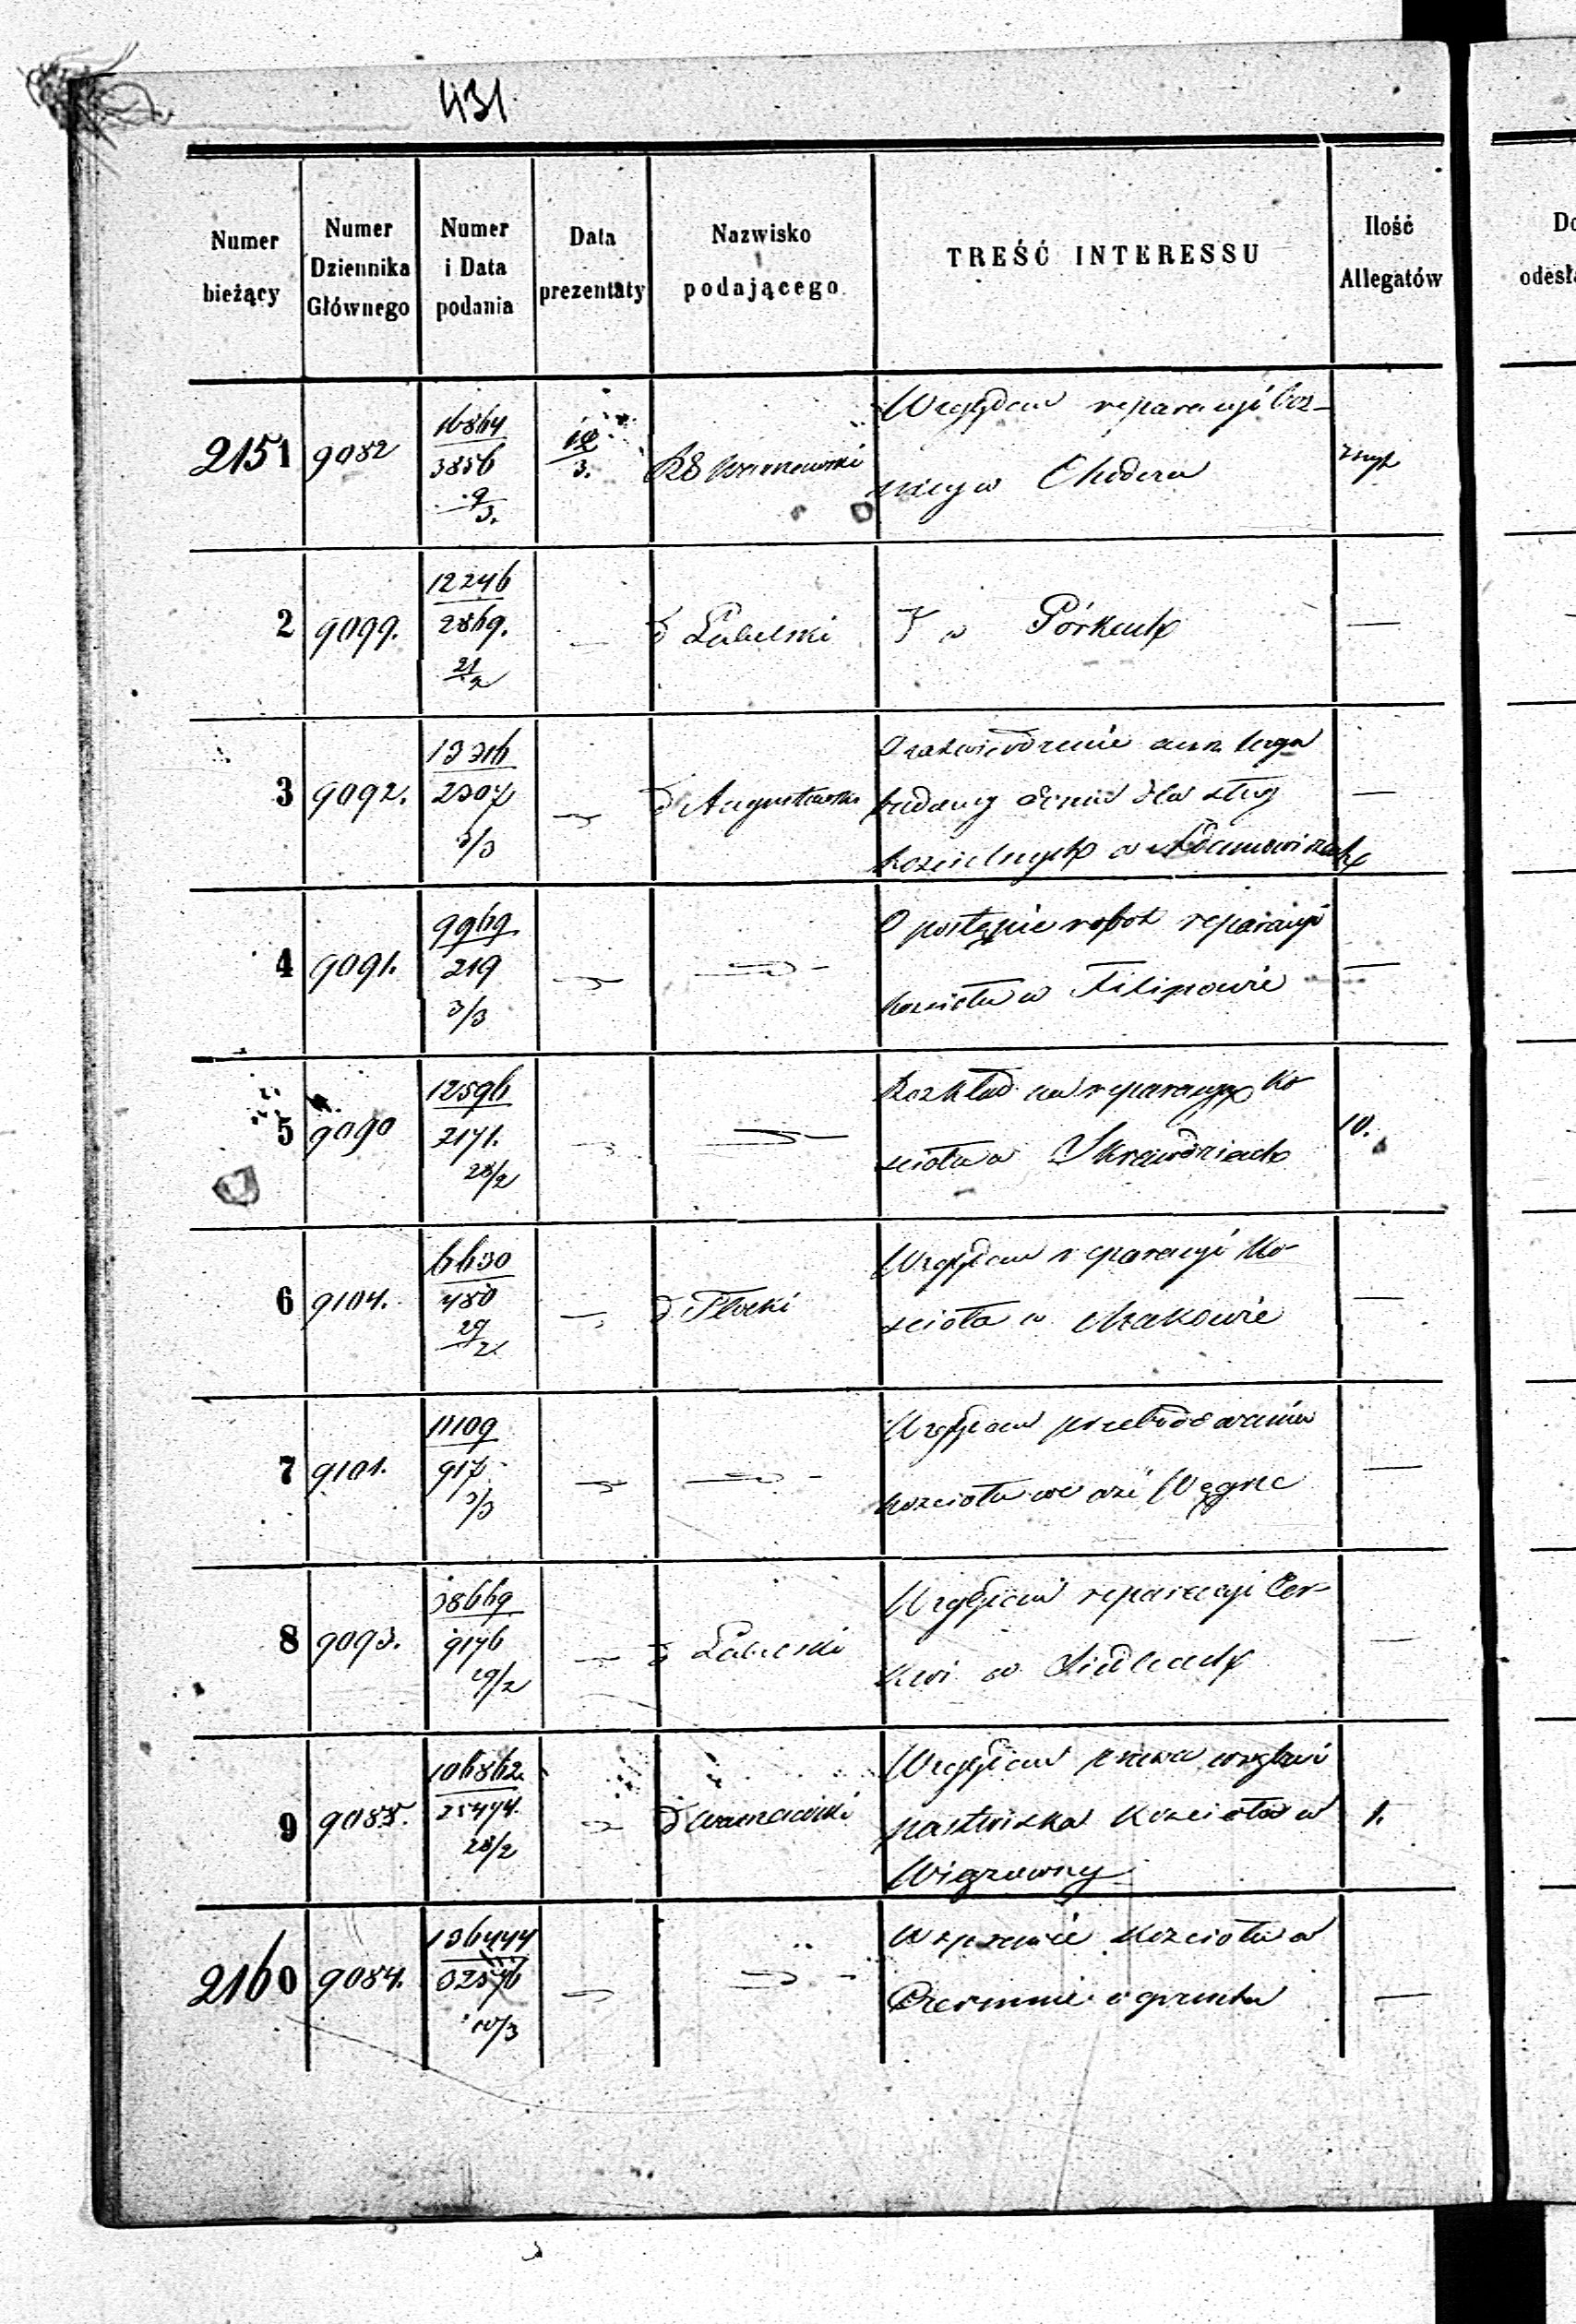 431
Numer bieżący
Numer Dziennika Głównego
Numer i Data podania
Data prezentaty
Nazwisko podającego
TREŚĆ INTERESSU
Ilość Allegatów
Do
odesła
2151 9082 16864 3856 9/3. 10/3. Warszawski Względem reparacyi
w Chodecu
2 9099. 12246 2869. 21/2 — d Lubelski w Górkach —
3 9092. 13316 2307 3/3 — d Augustowski O zatwierdzenie
budowy domu dla sług
kościelnych w Adamowiczach —
4 9091. 9969 219 3/3 — — O postępie robot reparacyi
kościoła w Filipowie —
5 9090 12596 2171. 28/2 — — Rozkład na reparacyą Ko-
ścioła w Skrawdziach 10.
6 9104. 6630 480 29/2 — d Płocki Względem reparacyi Ko-
ścioła w Makowie —
7 9101. 11109 917 3/3 — — Względem przebudowania
kościoła we wsi Węgrze —
8 9093. 38669 9176 29/2 — d Lubelski Względem reparacyi Cer-
kwi w Siedlcach —
9 9085. 106862 25474 28/2 — d Warszawski Względem prawa
pastwiska Kościoła w 1.
2160 9084. 136444 10/3 — — W sprawie Kościoła w
o grunta —